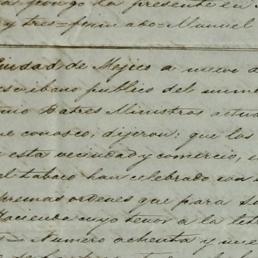 pongo la presente en
y tres = firm ado = Manuel
Ciudad de Mejico a nueve d
escribano publico del nume
Batres Ministros actua
ue conosco; dijeron: que los
esta vecindad y comercio, e
el tabaco han celebrado con
premas ordenes que para su
Hacienda cuyo tenor a la let
= Numero ochenta y nue